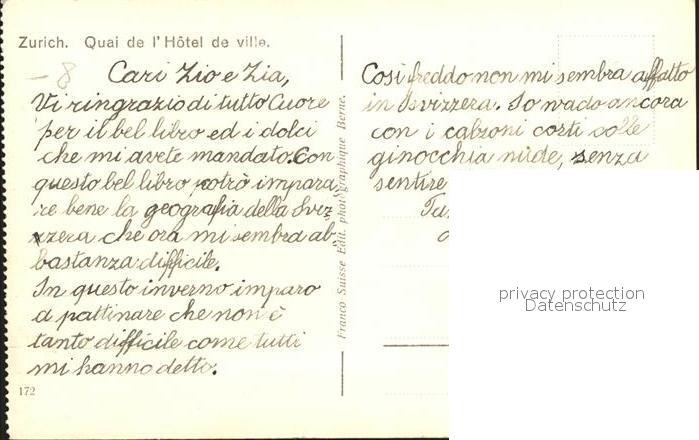 Zurich. Quai de l'Hôtel de ville.
– 8
Cari Zio e Zia,
Vi ringrazio di tutto Cuore
per il bel libro ed i dolci
che mi avete mandato. Con
questo bel libro potrò impara
re bene la geografia della Sviz-
zzera che ora mi sembra ab-
bastanza difficile.
In questo inverno imparo
a pattinare che non è
tanto difficile come tutti
mi hanno detto.
172
Franco Suisse Edit. photographique Berne.
Così freddo non mi sembra affatto
in Isvizzera. Io vado ancora
con i calzoni corti colle
ginocchia nude, senza
sentire
privacy protection
Datenschutz